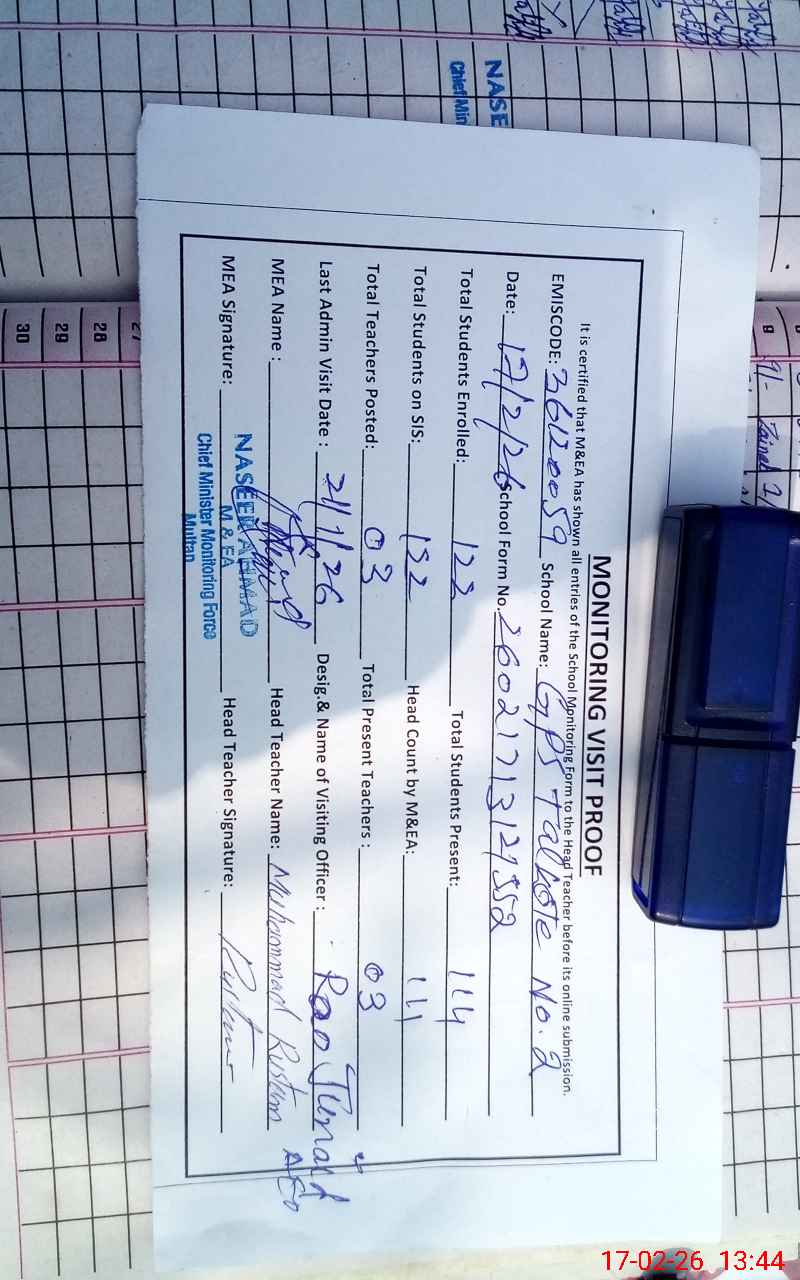 MONITORING VISIT PROOF
It is certified that M&EA has shown all entries of the School Monitoring Form to the Head Teacher before its online submission.
EMISCODE: 36120059 School Name: GPS Talkote No. 2
Date: 17/2/26 School Form No. 26021713121552
Total Students Enrolled: 122 Total Students Present: 114
Total Students on SIS: 122 Head Count by M&EA: 114
Total Teachers Posted: 03 Total Present Teachers: 03
Last Admin Visit Date: 21/1/26 Desig.& Name of Visiting Officer: Rao Junaid AEO
MEA Name: Head Teacher Name: Muhammad Rustam
MEA Signature: Head Teacher Signature: Rustam
NASEEM AHMAD
M & EA
Chief Minister Monitoring Force
Multan
NASE
Chief Min
30
29
28
27
9
Zainab
17-02-26 13:44